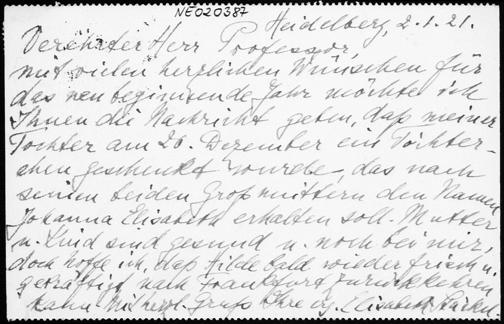 NE020387
Heidelberg, 2.1.21.
Verehrter Herr Professor,
mit vielen herzlichen Wünschen für
das neu beginnende Jahr möchte ich
Ihnen die Nachricht geben, daß meiner
Tochter am 26. Dezember ein Töchter-
chen geschenkt wurde, das nach
seinen beiden Großmüttern den Namen
Johanna Elisabeth erhalten soll. Mutter
u. Kind sind gesund u. noch bei mir,
doch hoffe ich, daß Hilde bald wieder frisch u.
gekräftigt nach Frankfurt zurückkehren
kann. Mit herzl. Gruß Ihre Elisabeth